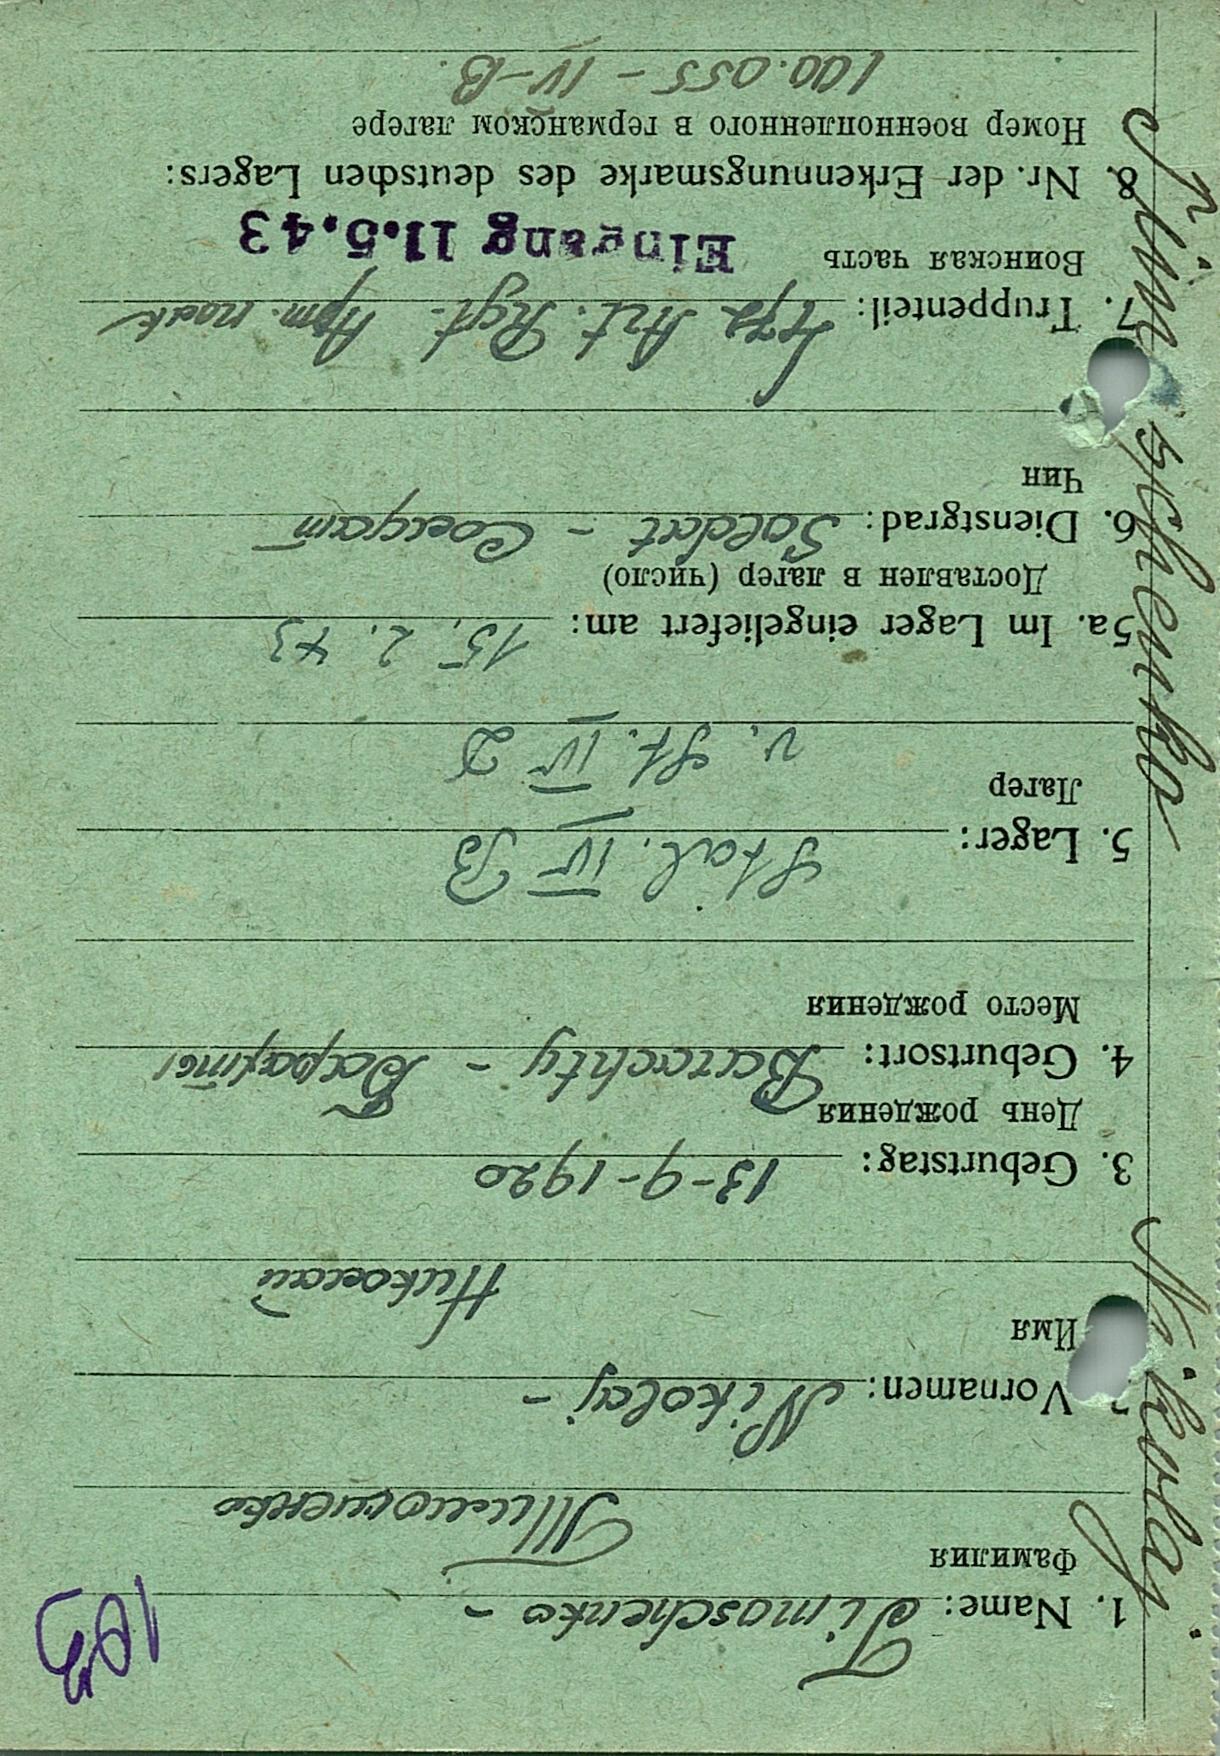 1. Name: Timoschenko -
Фамилия
Тимошенко
Vornamen: Nikolaj -
Имя
Николай
3. Geburtstag: 13-9-1920
День рождения
4. Geburtsort: Barachty - Барахты
Место рождения
5. Lager: Stal. IV B
Лагер
v. St. IV D
5a. Im Lager eingeliefert am: 15. 2. 43
Доставлен в лагер (число)
6. Dienstgrad: Soldat - Солдат
Чин
7. Truppenteil: Art. Rgt. Арт. полк
Воинская часть Eingang 11.5.43
8. Nr. der Erkennungsmarke des deutschen Lagers:
Номер военнопленного в германском лагере
100.055 - IV-B.
Timoschenko Nikolaj